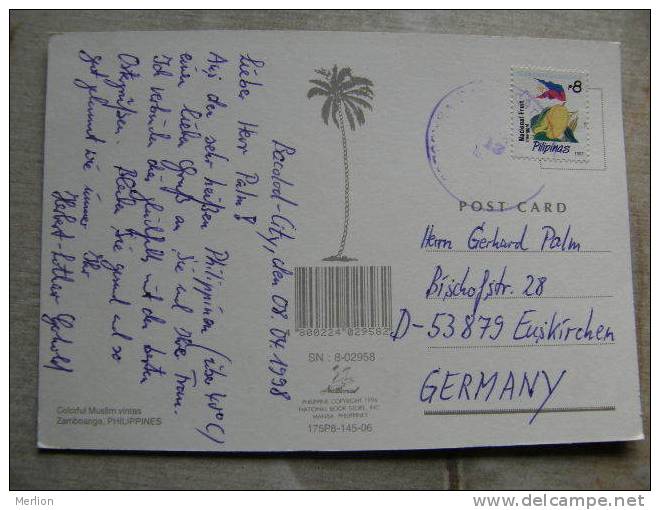 Bacolod-City, den 08.04.1998
Lieber Herr Palm!
Aus den sehr heißen Philippinen (über 40°C)
einen lieben Gruß an Sie und Ihre Frau.
Ich verbinde den mit den besten
Ostergrüßen. Bleiben Sie gesund und so
gut gelaunt wie immer Ihr
Herbert-Lothar
Colorful Muslim vintas
Zamboanga, PHILIPPINES
7 800224 029582
SN : 8-02958
National
PHILIPPINE COPYRIGHT 1996
NATIONAL BOOK STORE, INC.
MANILA PHILIPPINES
175P8-145-06
P8
National Fruit
Pilipinas
1997
POST CARD
Herrn Gerhard Palm
Bischofstr. 28
D-53879 Euskirchen
GERMANY
Merlion
www.delcampe.net